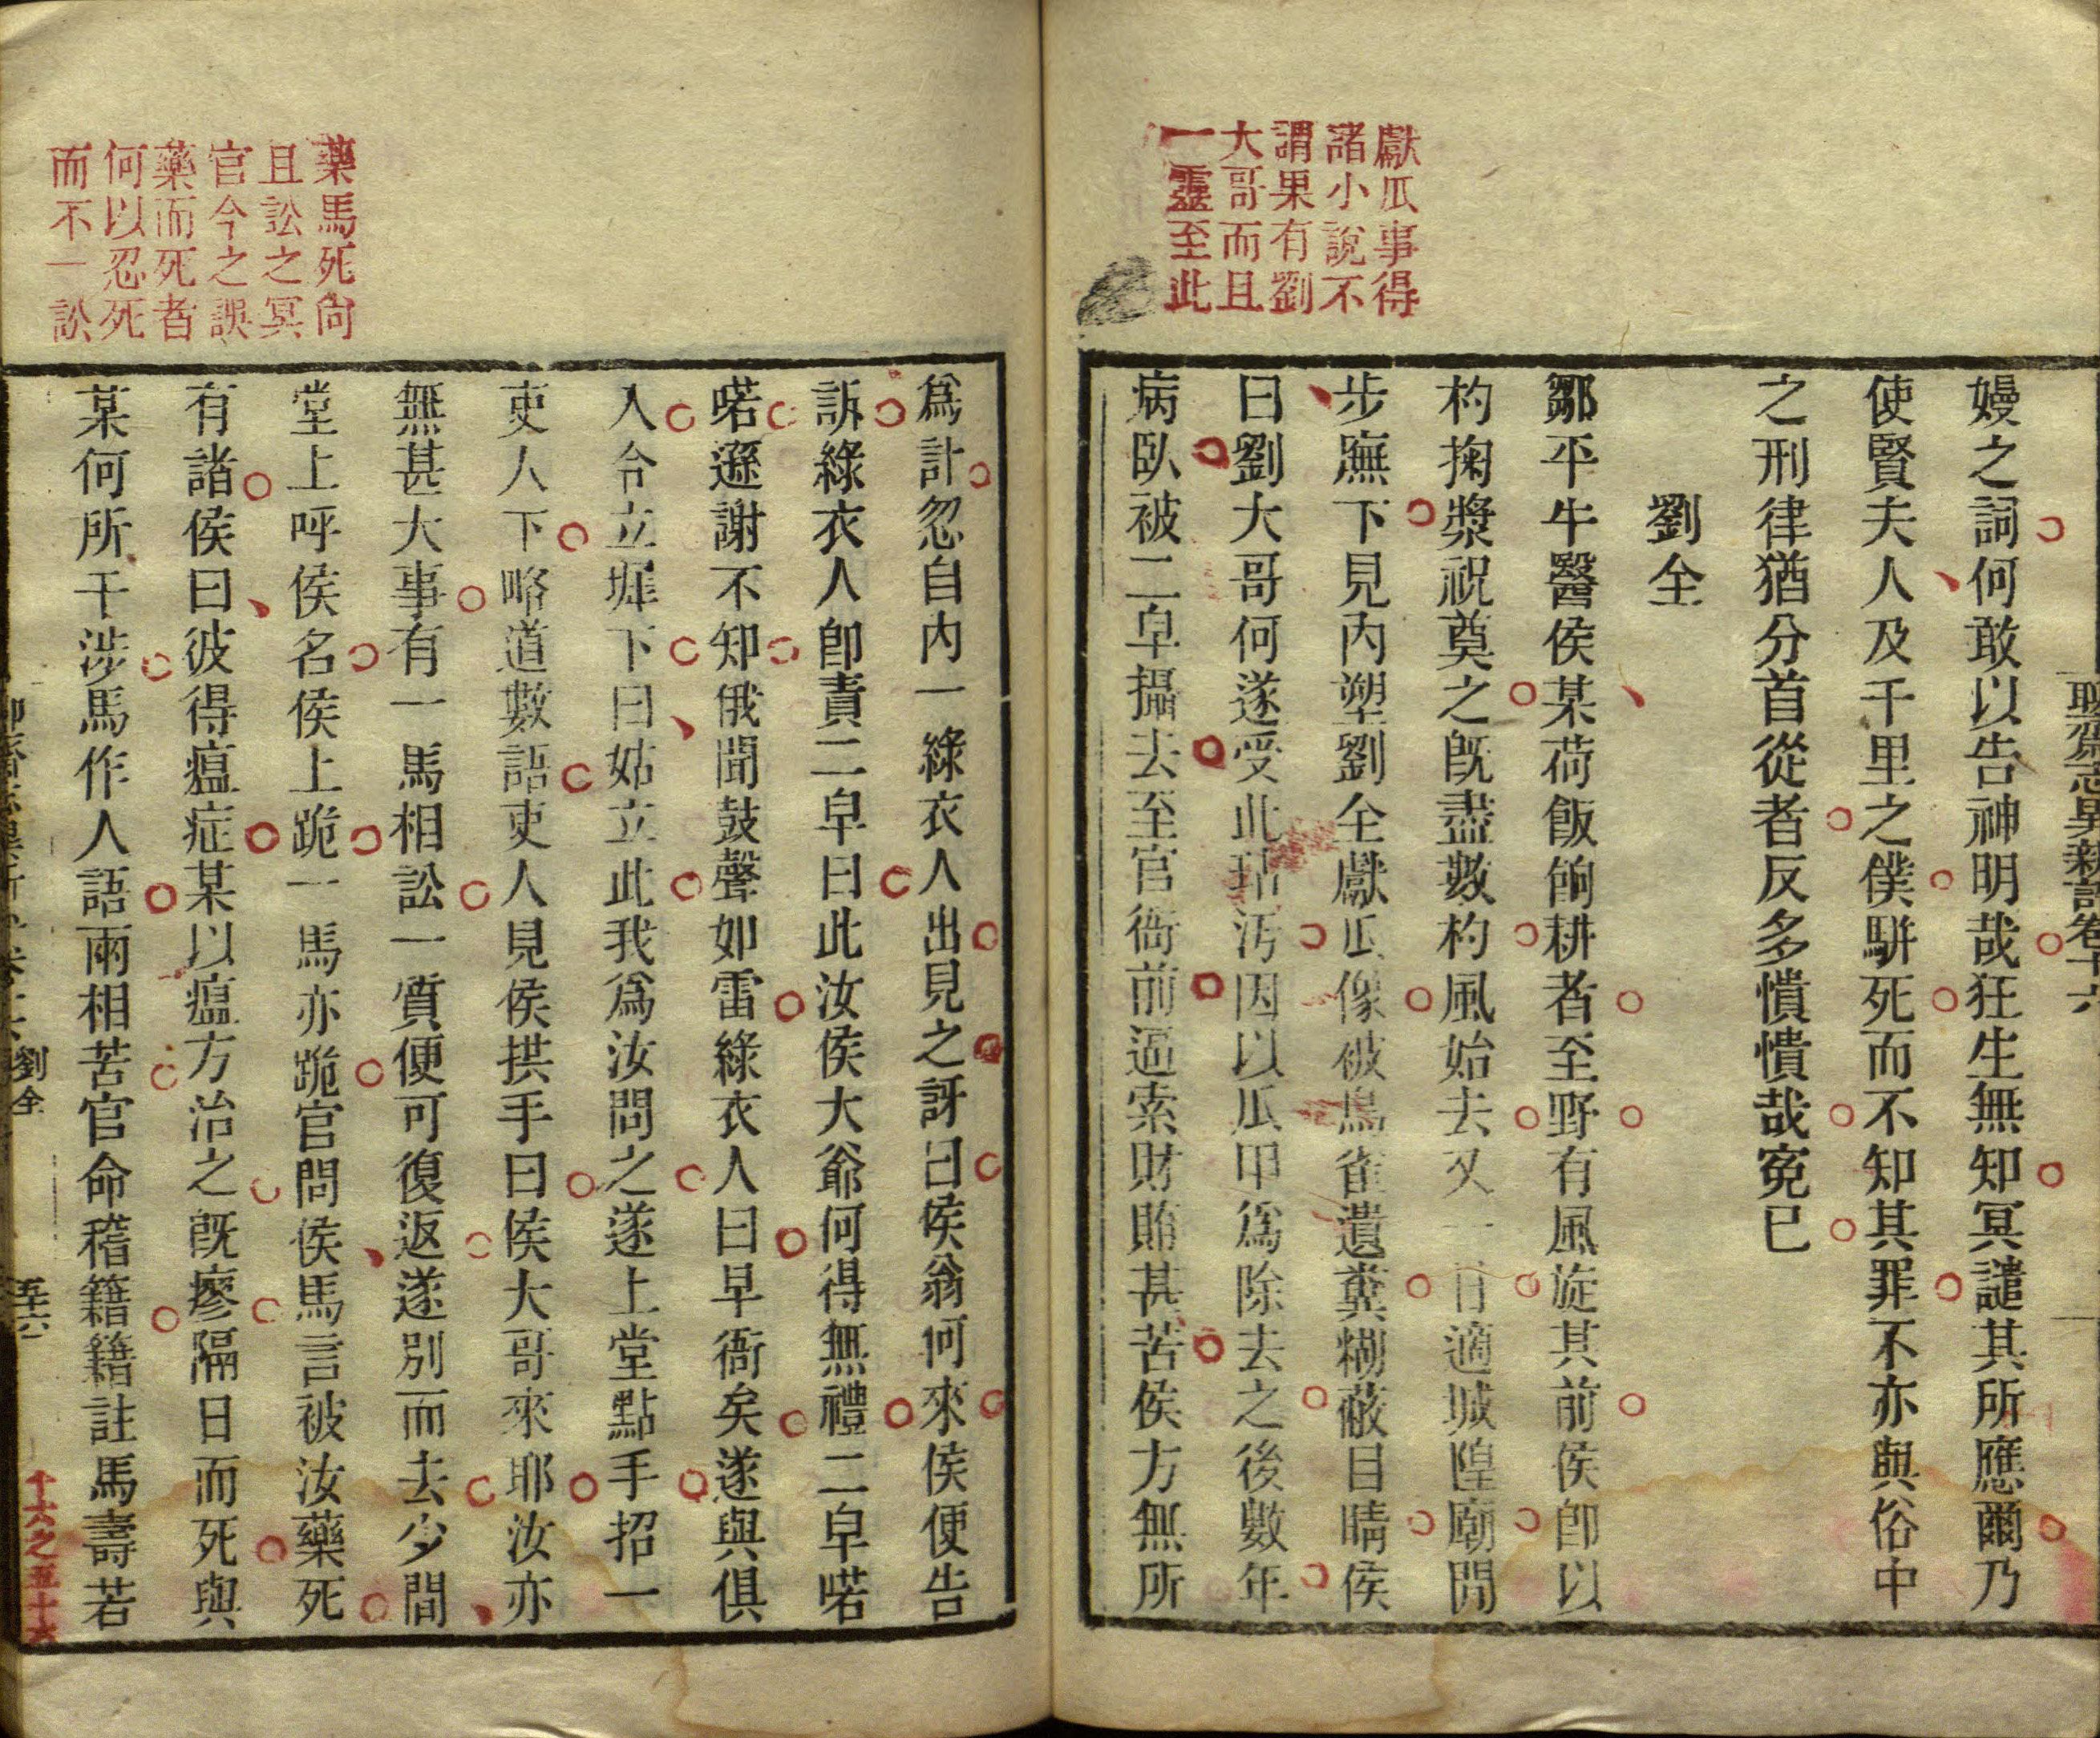 獻瓜事得
諸小說不
謂果有劉
大哥而且
一靈至此
聊齋志異新評卷十六
嫚之詞何敢以告神明哉狂生無知冥譴其所應爾乃
使賢夫人及千里之僕駢死而不知其罪不亦與俗中
之刑律猶分首從者反多憒憒哉冤已
劉全
鄒平牛醫侯某荷飯餉耕者至野有風旋其前侯卽以
杓掬漿祝奠之旣盡數杓風始去又一日適城隍廟閒
步廡下見內塑劉全獻瓜像被鳥雀遺糞糊蔽目睛侯
曰劉大哥何遂受此玷汚因以瓜甲爲除去之後數年
病臥被二皁攝去至官衙前逼索財賄甚苦侯方無所
藥馬死尙
且訟之冥
官今之誤
藥而死者
何以忍死
而不一訟
爲計忽自內一綠衣人出見之訝曰侯翁何來侯便告
訴綠衣人卽責二皁曰此汝侯大爺何得無禮二皁喏
喏遜謝不知俄聞鼓聲如雷綠衣人曰早衙矣遂與俱
入令立墀下曰姑立此我爲汝問之遂上堂點手招一
吏人下略道數語吏人見侯拱手曰侯大哥來耶汝亦
無甚大事有一馬相訟一質便可復返遂別而去少間
堂上呼侯名侯上跪一馬亦跪官問侯馬言被汝藥死
有諸侯曰彼得瘟症某以瘟方治之旣瘳隔日而死與
某何所干涉馬作人語兩相苦官命稽籍籍註馬壽若
劉全
五十六
十六之五十六